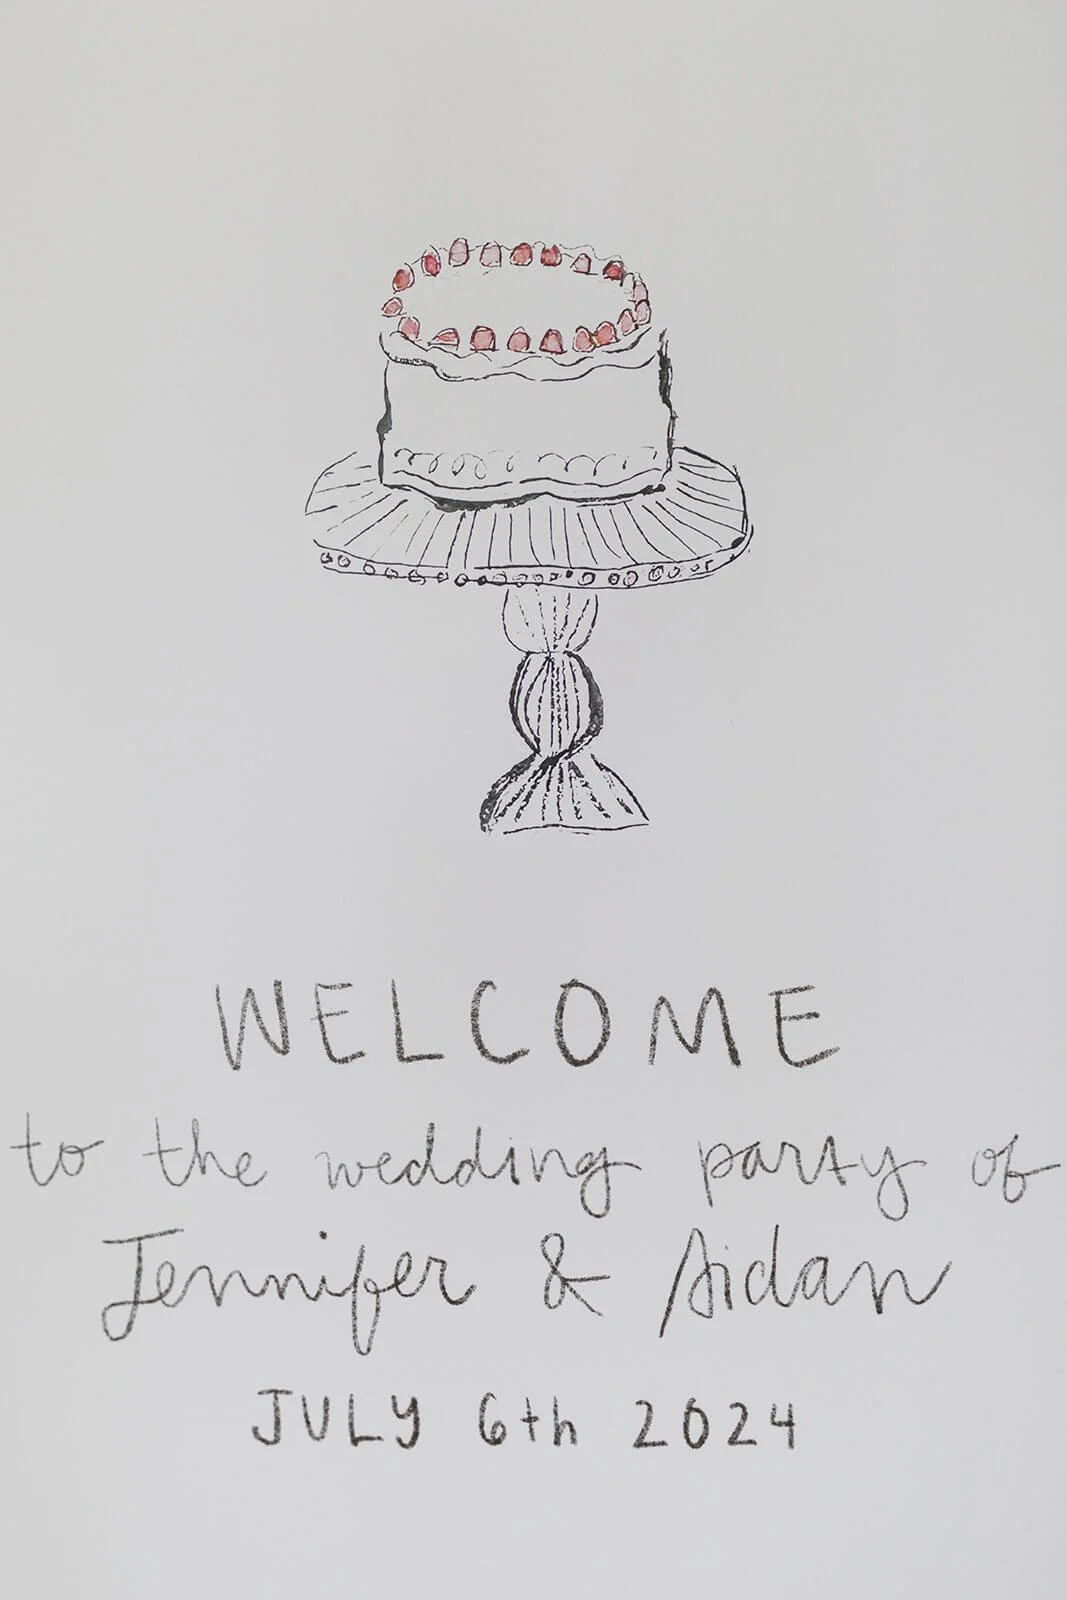 WELCOME
to the wedding party of
Jennifer & Aidan
JULY 6th 2024